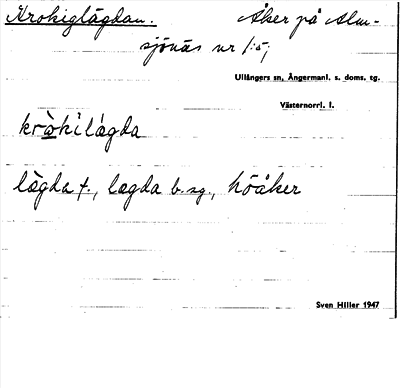 Krokiglägdan. Åker på Alm-
sjönäs nr 1:5;
Ullångers sn, Ångermanl. s. doms. tg.
Västernorrl. l.
kròki lágda
lägda f., lagda b.sg., höåker
Sven Hiller 1947